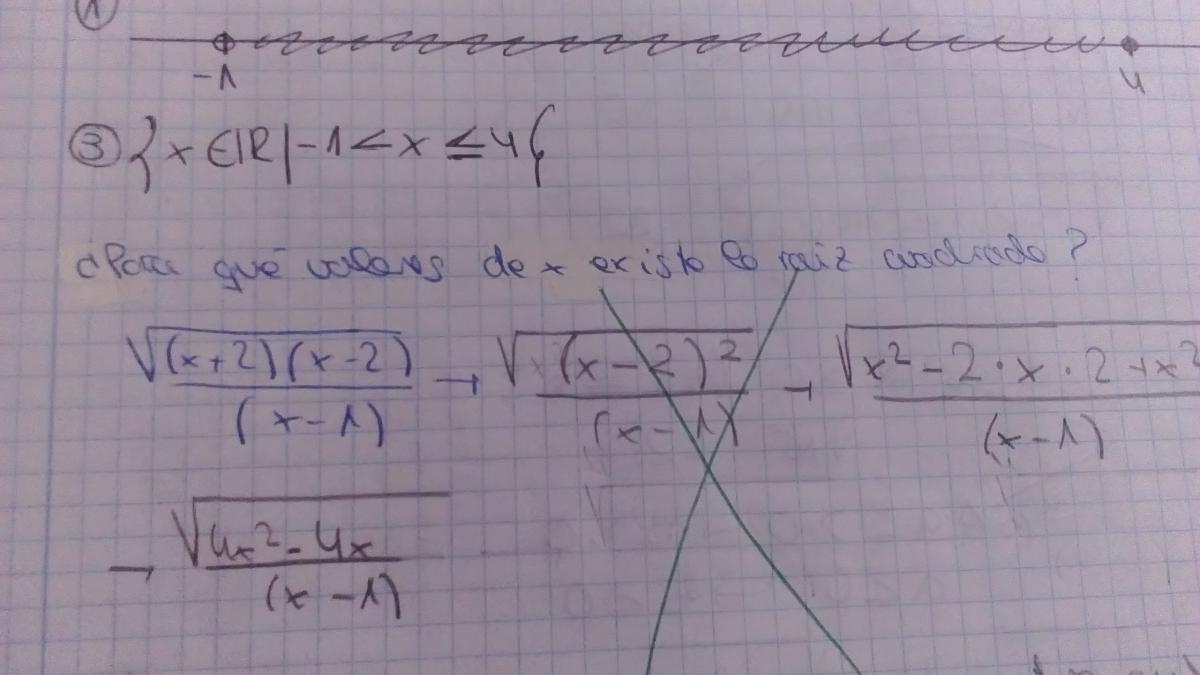 1
-1 4
③ } x ∈ ℝ | -1 < x ≤ 4 {
¿Para qué valores de x existe la raíz cuadrada?
√(x+2)(x-2) / (x-1) → √(x-2)² / (x-1) → √x² - 2·x·2+x² / (x-1)
→ √4x² - 4x / (x-1)